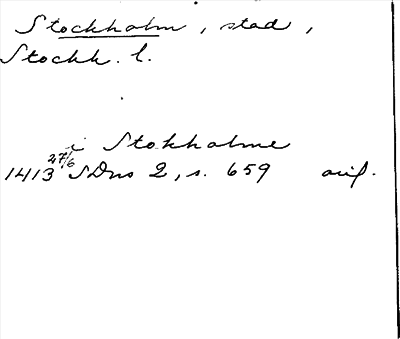 Stockholm, stad,
Stockh. l.
i Stokholme
1413 27/6 SDns 2, s. 659 orig.